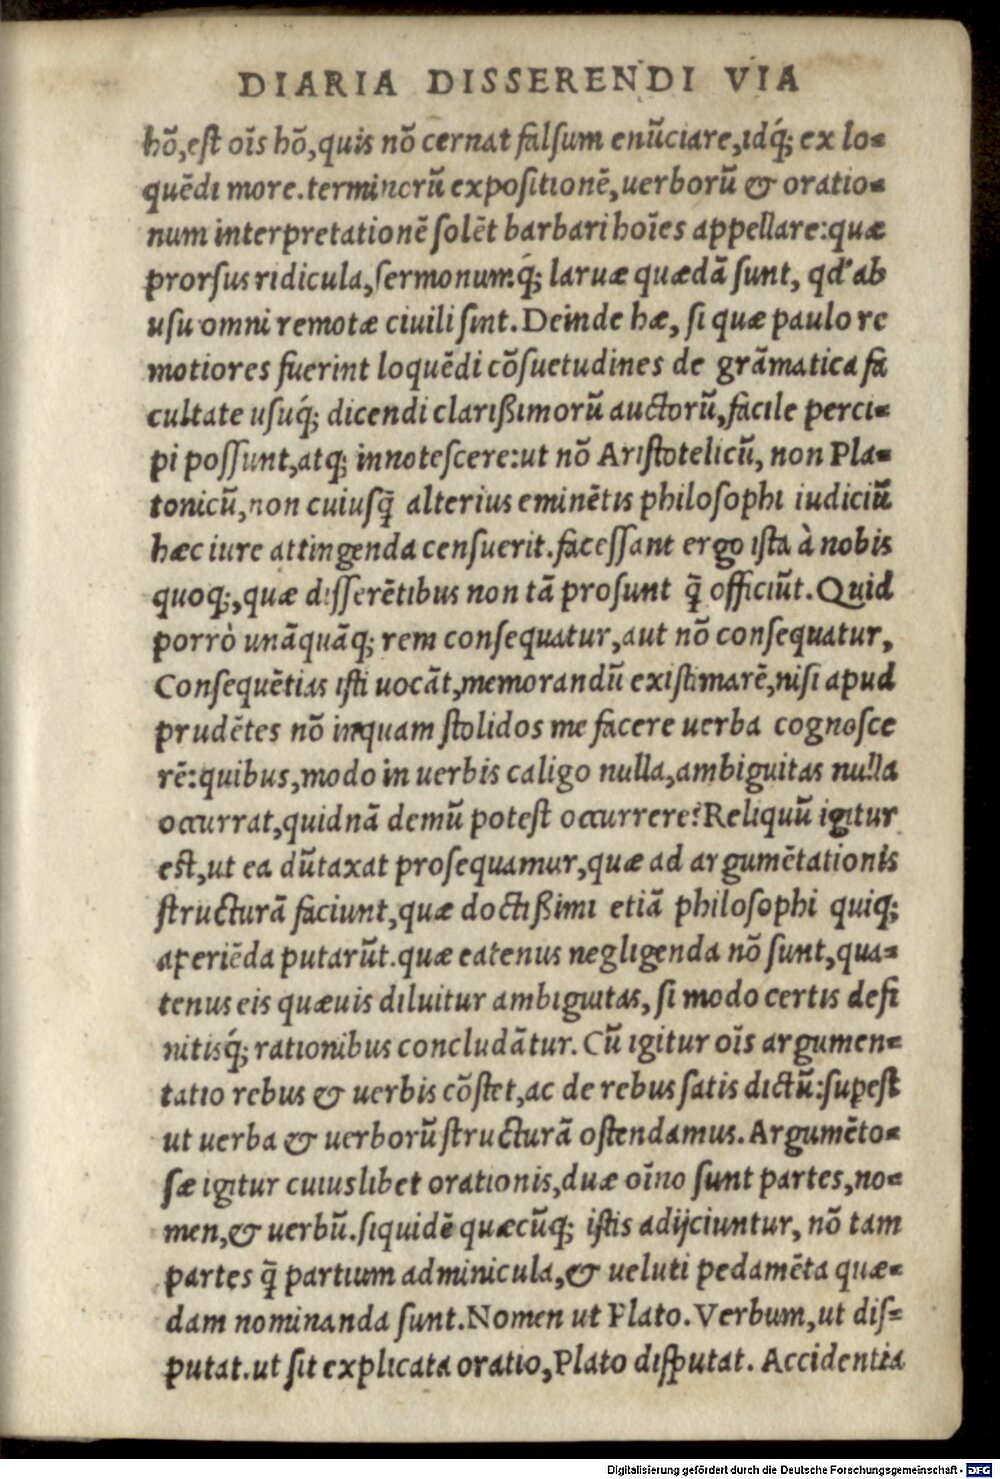 DIARIA DISSERENDI VIA
hõ,eſt oĩs hõ,quis nõ cernat falſum enũciare,idq́; ex lo-
quẽdi more.terminorũ expoſitionẽ,uerborũ & oratio-
num interpretationẽ ſolẽt barbari hoĩes appellare:quæ
prorſus ridicula,ſermonumq́; laruæ quædã ſunt, qd' ab
uſu omni remotæ ciuili ſint.Deinde hæ, ſi quæ paulo re
motiores fuerint loquẽdi cõſuetudines de grãmatica fa
cultate uſuq́; dicendi clarißimorũ auctorũ,facile perci-
pi poſſunt,atq; innoteſcere:ut nõ Ariſtotelicũ, non Pla-
tonicũ,non cuiuſq̃ alterius eminẽtis philoſophi iudiciũ
hæc iure attingenda cenſuerit.faceſſant ergo iſta à nobis
quoq;,quæ diſſerẽtibus non tã proſunt q̃ officiũt.Quid
porrò unãquãq; rem conſequatur,aut nõ conſequatur,
Conſequẽtias iſti uocãt,memorandũ exiſtimarẽ,niſi apud
prudẽtes nõ inquam ſtolidos me facere uerba cognoſce
rẽ:quibus,modo in uerbis caligo nulla,ambiguitas nulla
occurrat,quidnã demũ poteſt occurrere?Reliquũ igitur
eſt,ut ea dũtaxat proſequamur,quæ ad argumẽtationis
ſtructurã faciunt,quæ doctißimi etiã philoſophi quiq;
aperiẽda putarũt.quæ eatenus negligenda nõ ſunt,qua-
tenus eis quæuis diluitur ambiguitas, ſi modo certis defi
nitisq́; rationibus concludãtur. Cũ igitur oĩs argumen-
tatio rebus & uerbis cõſtet,ac de rebus ſatis dictũ:ſuꝑeſt
ut uerba & uerborũ ſtructurã oſtendamus. Argumẽto-
ſæ igitur cuiuslibet orationis,duæ oĩno ſunt partes,no-
men,& uerbũ.ſiquidẽ quæcũq; iſtis adijciuntur, nõ tam
partes q̃ partium adminicula,& ueluti pedamẽta quæ-
dam nominanda ſunt.Nomen ut Plato.Verbum,ut diſ-
putat.ut ſit explicata oratio,Plato diſputat. Accidentia
Digitalisierung gefördert durch die Deutsche Forschungsgemeinschaft - DFG